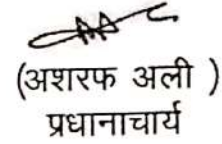 (अशरफ अली )
प्रधानाचार्य